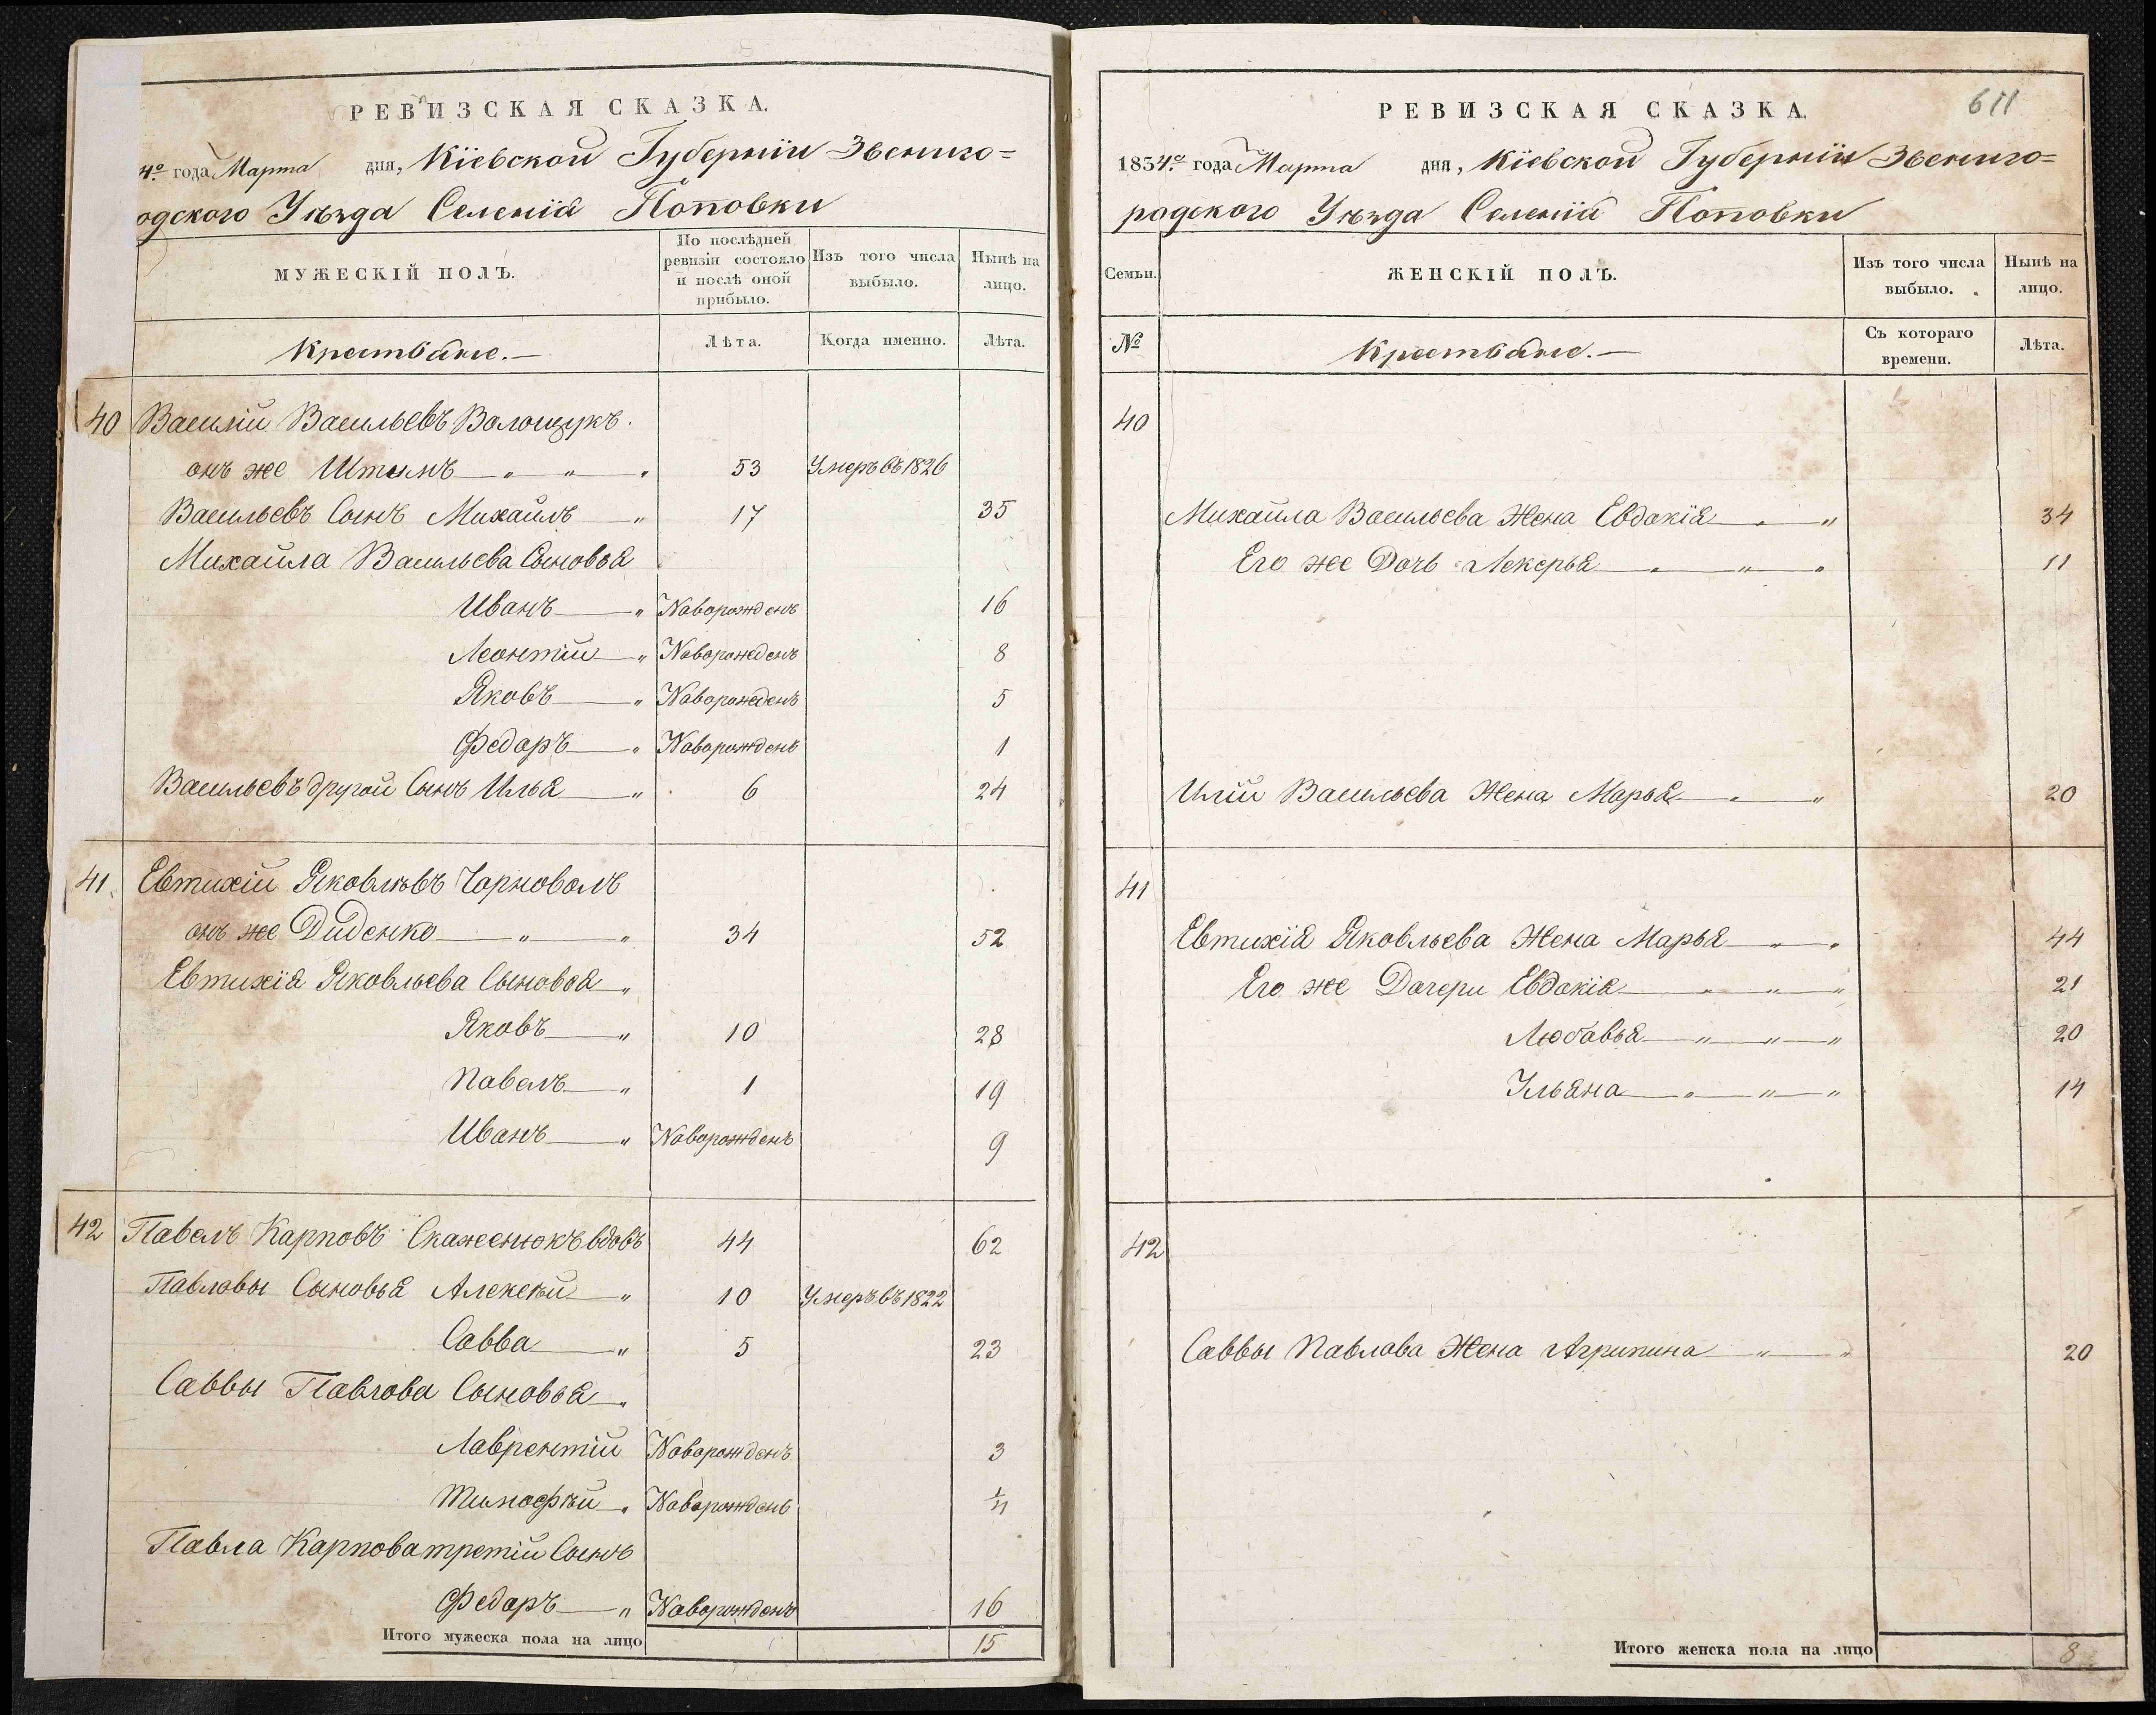 РЕВИЗСКАЯ СКАЗКА.
4го года Марта дня, Кіевской Губерніи Звениго=
одского Уѣзда Селенія Поповки
МУЖЕСКІЙ ПОЛЪ.
По послѣдней ревизіи состояло и послѣ оной прибыло.
Изъ того числа выбыло.
Нынѣ на лицо.
Крестьяне.—
Лѣта.
Когда именно.
Лѣта.
40 Василій Васильевъ Волощукъ.
онъ же Штымъ — „ — „ — „ 53 Умеръ въ 1826
Васильевъ Сынъ Михаилъ — „ 17 35
Михайла Васильева Сыновья
Иванъ — „ Новорожденъ 16
Леонтій — „ Новорожденъ 8
Яковъ — „ Новорожденъ 5
Федоръ — „ Новорожденъ 1
Васильевъ другой Сынъ Илья — „ 6 24
41 Евтихій Яковлѣвъ Чорноволъ
онъ же Диденко — „ — „ 34 52
Евтихія Яковльева Сыновья „
Яковъ — „ 10 28
Павелъ — „ 1 19
Иванъ — „ Новорожденъ 9
42 Павелъ Карповъ Скаженюкъ вдовъ 44 62
Павловы Сыновья Алексѣй — „ 10 Умеръ въ 1822
Савва — „ 5 23
Саввы Павлова Сыновья „
Лаврентій Новорожденъ 3
Тимофѣй „ Новорожденъ
Павла Карпова третій Сынъ
Федоръ — „ Новорожденъ 16
Итого мужеска пола на лицо 15
РЕВИЗСКАЯ СКАЗКА.
611
1834го года Марта дня, Кіевской Губерніи Звениго=
родского Уѣзда Селенія Поповки
Семьи.
ЖЕНСКІЙ ПОЛЪ.
Изъ того числа выбыло.
Нынѣ на лицо.
№
Крестьяне.—
Съ котораго времени.
Лѣта.
40
Михайла Васильева Жена Евдокія — „ — „ 34
Его же Дочь Лекерья — „ — „ — „ 11
Иліи Васильева Жена Марья — „ — „ 20
41
Евтихія Яковльева Жена Марья — „ — „ 44
Его же Дочери Евдокія — „ — „ — „ 21
Любовья — „ — „ — „ 20
Ульяна — „ — „ — „ 14
42
Саввы Павлова Жена Агрипина — „ — „ 20
Итого женска пола на лицо 8